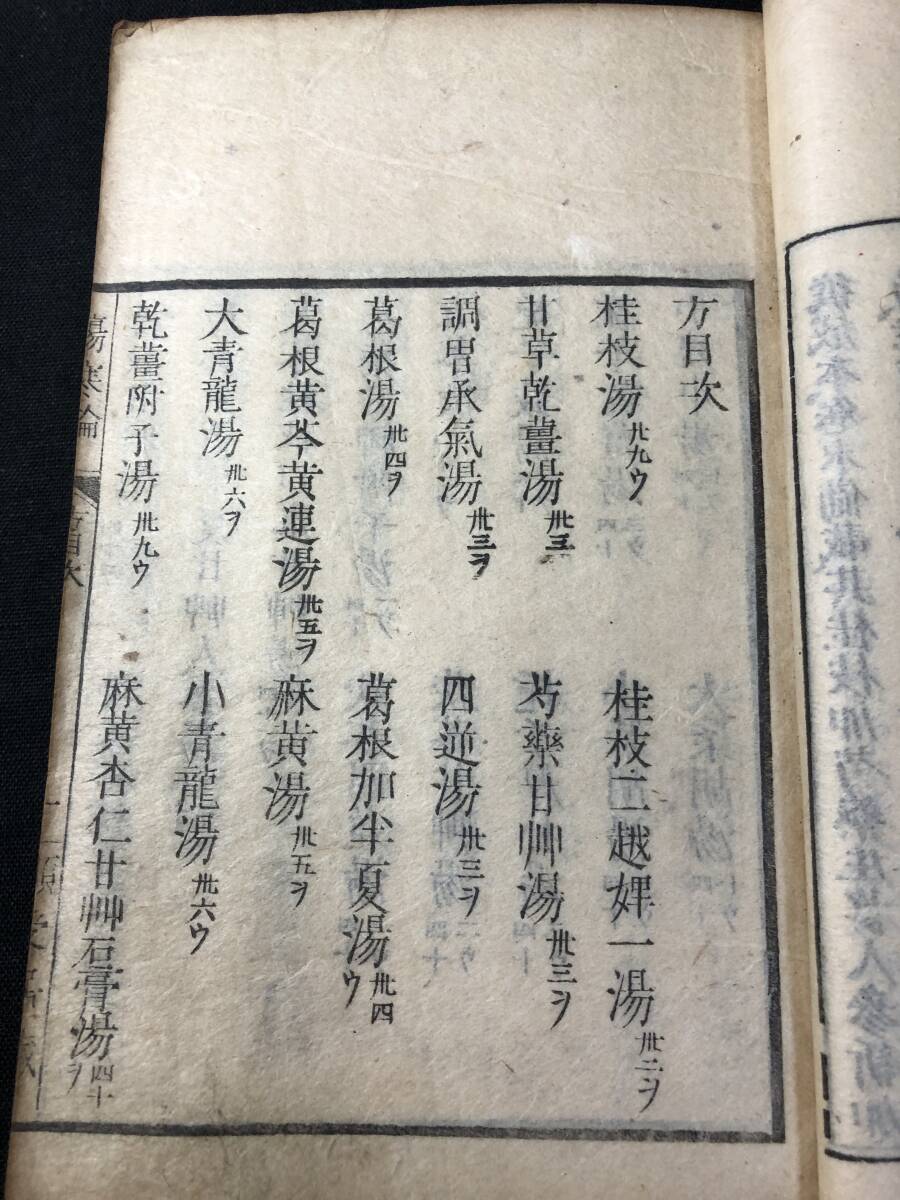 方目次
桂枝湯 廿九ウ 桂枝二越婢一湯 卅二ヲ
甘草乾薑湯 卅三 芍藥甘艸湯 卅三ヲ
調胃承氣湯 卅三ヲ 四逆湯 卅三ヲ
葛根湯 卅四ヲ 葛根加半夏湯 卅四ウ
葛根黄芩黄連湯 卅五ヲ 麻黄湯 卅五ヲ
大青龍湯 卅六ヲ 小青龍湯 卅六ウ
乾薑附子湯 卅九ウ 麻黄杏仁甘艸石膏湯 四十ヲ
傷寒論 方目次